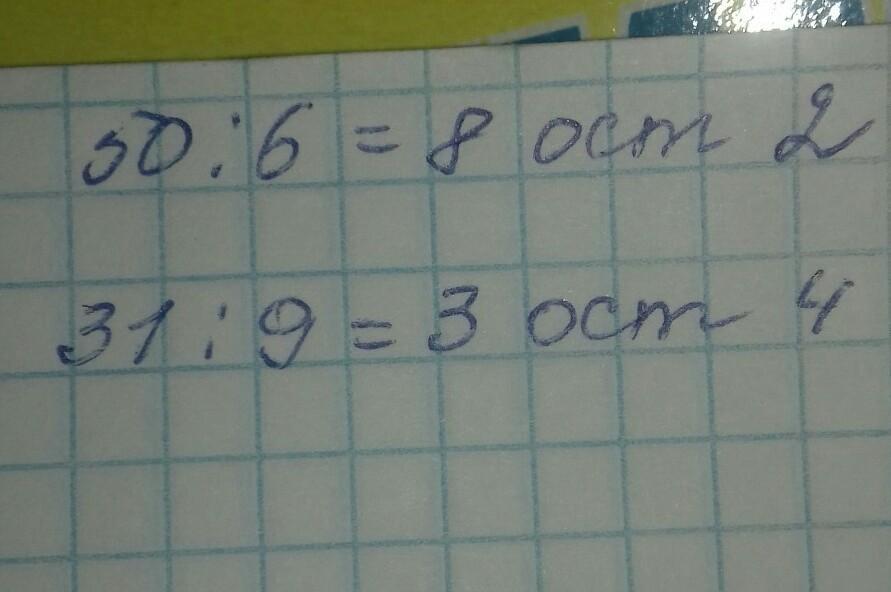 50:6 = 8 ост 2
31:9 = 3 ост 4